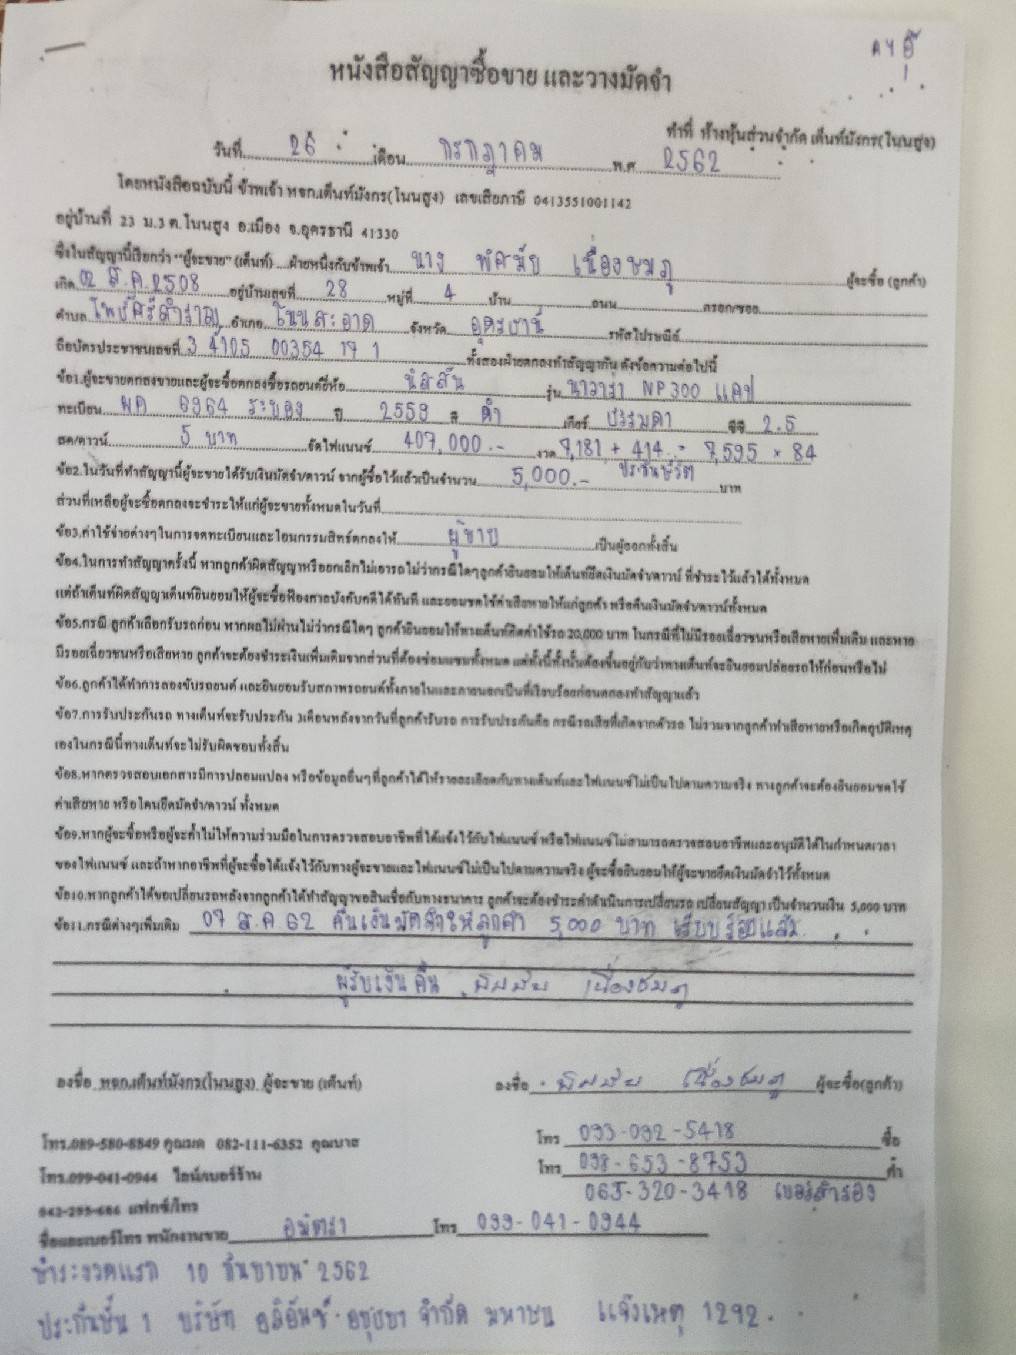 หนังสือสัญญาซื้อขาย และวางมัดจำ
ทำที่ ห้างหุ้นส่วนจำกัด เต็นท์มังกร(โนนสูง)
วันที่ 26 เดือน กรกฎาคม พ.ศ. 2562
โดยหนังสือฉบับนี้ ข้าพเจ้า หจก.เต็นท์มังกร(โนนสูง) เลขเสียภาษี 0413551001142
อยู่บ้านที่ 23 ม.3 ต.โนนสูง อ.เมือง จ.อุดรธานี 41330
ซึ่งในสัญญานี้เรียกว่า "ผู้จะขาย" (เต็นท์) ฝ่ายหนึ่งกับข้าพเจ้า นาง พิศมัย เนื่องชมภู ผู้จะซื้อ (ลูกค้า)
เกิด 02 ส.ค. 2508 อยู่บ้านเลขที่ 28 หมู่ที่ 4 บ้าน ถนน ตรอก/ซอย
ตำบล โพธิ์ศรีสำราญ อำเภอ โนนสะอาด จังหวัด อุดรธานี รหัสไปรษณีย์
ถือบัตรประชาชนเลขที่ 3 4105 00354 17 1 ทั้งสองฝ่ายตกลงทำสัญญากัน ดังข้อความต่อไปนี้
ข้อ1.ผู้จะขายตกลงขายและผู้จะซื้อตกลงซื้อรถยนต์ยี่ห้อ นิสสัน รุ่น นาวารา NP300 แคป
ทะเบียน ผค 6964 ระยอง ปี 2559 สี ดำ เกียร์ ธรรมดา ซีซี 2.5
สด/ดาวน์ 5 บาท จัดไฟแนนซ์ 407,000.- งวด 7,181 + 414 = 7,595 × 84
ประกันชีวิต
ข้อ2.ในวันที่ทำสัญญานี้ผู้จะขายได้รับเงินมัดจำ/ดาวน์ จากผู้ซื้อไว้แล้วเป็นจำนวน 5,000.- บาท
ส่วนที่เหลือผู้จะซื้อตกลงจะชำระให้แก่ผู้จะขายทั้งหมดในวันที่
ข้อ3.ค่าใช้จ่ายต่างๆในการจดทะเบียนและโอนกรรมสิทธิ์ตกลงให้ ผู้ขาย เป็นผู้ออกทั้งสิ้น
ข้อ4.ในการทำสัญญาครั้งนี้ หากลูกค้าผิดสัญญาหรือยกเลิกไม่เอารถไม่ว่ากรณีใดๆลูกค้ายินยอมให้เต็นท์ยึดเงินมัดจำ/ดาวน์ ที่ชำระไว้แล้วได้ทั้งหมด
แต่ถ้าเต็นท์ผิดสัญญาเต็นท์ยินยอมให้ผู้จะซื้อฟ้องศาลบังคับคดีได้ทันที และยอมชดใช้ค่าเสียหายให้แก่ลูกค้า หรือคืนเงินมัดจำ/ดาวน์ทั้งหมด
ข้อ5.กรณี ลูกค้าเลือกรับรถก่อน หากผลไม่ผ่านไม่ว่ากรณีใดๆ ลูกค้ายินยอมให้ทางเต็นท์คิดค่าใช้รถ 20,000 บาท ในกรณีที่ไม่มีรอยเฉี่ยวชนหรือเสียหายเพิ่มเติม และหาก
มีรอยเฉี่ยวชนหรือเสียหาย ลูกค้าจะต้องชำระเงินเพิ่มเติมจากส่วนที่ต้องซ่อมแซมทั้งหมด แต่ทั้งนี้ทั้งนั้นต้องขึ้นอยู่กับว่าทางเต็นท์จะยินยอมปล่อยรถให้ก่อนหรือไม่
ข้อ6.ลูกค้าได้ทำการลองขับรถยนต์ และยินยอมรับสภาพรถยนต์ทั้งภายในและภายนอกเป็นที่เรียบร้อยก่อนตกลงทำสัญญาแล้ว
ข้อ7.การรับประกันรถ ทางเต็นท์จะรับประกัน 3เดือนหลังจากวันที่ลูกค้ารับรถ การรับประกันคือ กรณีรถเสียที่เกิดจากตัวรถ ไม่รวมจากลูกค้าทำเสียหายหรือเกิดอุบัติเหตุ
เองในกรณีนี้ทางเต็นท์จะไม่รับผิดชอบทั้งสิ้น
ข้อ8.หากตรวจสอบเอกสารมีการปลอมแปลง หรือข้อมูลอื่นๆที่ลูกค้าได้ให้รายละเอียดกับทางเต็นท์และไฟแนนซ์ไม่เป็นไปตามความจริง ทางลูกค้าจะต้องยินยอมชดใช้
ค่าเสียหาย หรือโดนยึดมัดจำ/ดาวน์ ทั้งหมด
ข้อ9.หากผู้จะซื้อหรือผู้จะค้ำไม่ให้ความร่วมมือในการตรวจสอบอาชีพที่ได้แจ้งไว้กับไฟแนนซ์ หรือไฟแนนซ์ไม่สามารถตรวจสอบอาชีพและอนุมัติได้ในกำหนดเวลา
ของไฟแนนซ์ และถ้าหากอาชีพที่ผู้จะซื้อได้แจ้งไว้กับทางผู้จะขายและไฟแนนซ์ไม่เป็นไปตามความจริง ผู้จะซื้อยินยอมให้ผู้จะขายยึดเงินมัดจำไว้ทั้งหมด
ข้อ10.หากลูกค้าได้ขอเปลี่ยนรถหลังจากลูกค้าได้ทำสัญญาขอสินเชื่อกับทางธนาคาร ลูกค้าจะต้องชำระค่าดำเนินการเปลี่ยนรถ เปลี่ยนสัญญา เป็นจำนวนเงิน 5,000 บาท
ข้อ11.กรณีต่างๆเพิ่มเติม 07 ส.ค 62 คืนเงินมัดจำให้ลูกค้า 5,000 บาท เรียบร้อยแล้ว
ผู้รับเงินคืน พิศมัย เนื่องชมภู
ลงชื่อ หจก.เต็นท์มังกร(โนนสูง) ผู้จะขาย (เต็นท์) ลงชื่อ พิศมัย เนื่องชมภู ผู้จะซื้อ(ลูกค้า)
โทร.089-580-8849 คุณมด 082-111-6352 คุณบาส โทร 093-092-5418 ซื้อ
โทร.099-041-0944 ไลน์/เบอร์ร้าน โทร 098-653-8753 ค้ำ
042-295-686 แฟกซ์/โทร 065-320-3418 เบอร์สำรอง
ชื่อและเบอร์โทร พนักงานขาย อมิตรา โทร 099-041-0944
ชำระงวดแรก 10 กันยายน 2562
ประกันชั้น 1 บริษัท อลิอันซ์ อยุธยา จำกัด มหาชน แจ้งเหตุ 1292